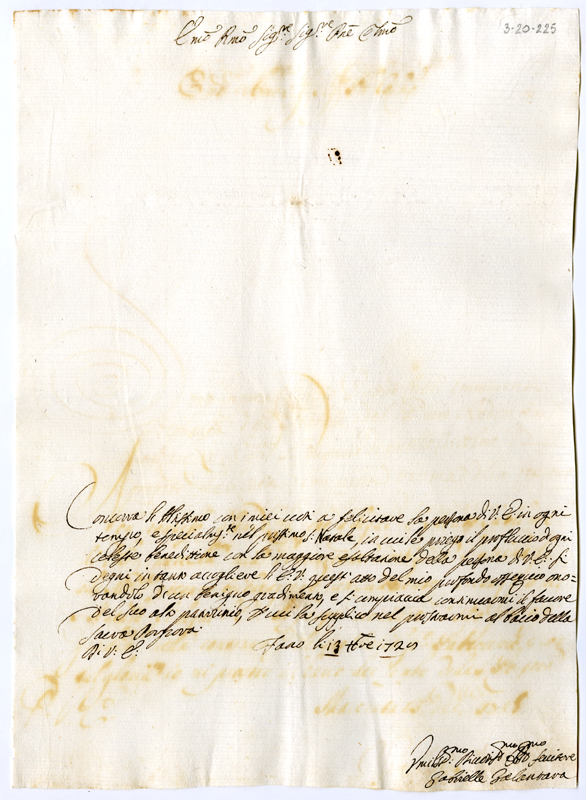 3-20-225
Emo Rmo Sigre Sigre Pne Clmo
Concorra l'Altissimo con i miei voti a felicitare la persona di V. E. in ogni
tempo, e specialmte nel prossimo S. Natale, in cui le prego il profluvio d'ogni
celeste benedittione con la maggiore esaltatione della persona di V. E. si
degni in tanto accogliere l'E. V. quest' atto del mio profondo ossequio ono-
randolo di un benigno gradimento, e si compiaccia continuarmi il favore
del suo alto patrocinio, di cui la supplico nel prostrarmi al bacio della
Sacra Porpora
Di V. E. Fano li 13 Xbre 172
Umilo Servitore
Gabrielle